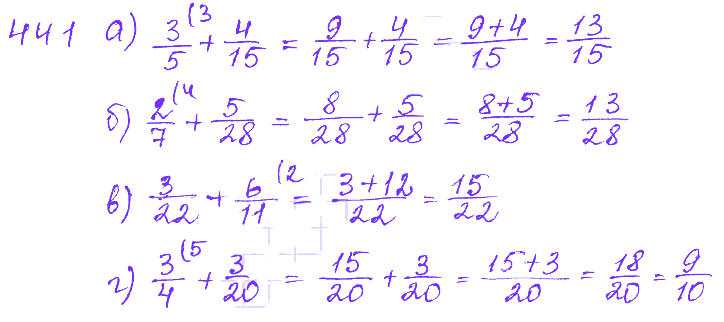 441 а) 3/5 (3 + 4/15 = 9/15 + 4/15 = 9+4/15 = 13/15
б) 2/7 (4 + 5/28 = 8/28 + 5/28 = 8+5/28 = 13/28
в) 3/22 + 6/11 (2 = 3+12/22 = 15/22
г) 3/4 (5 + 3/20 = 15/20 + 3/20 = 15+3/20 = 18/20 = 9/10